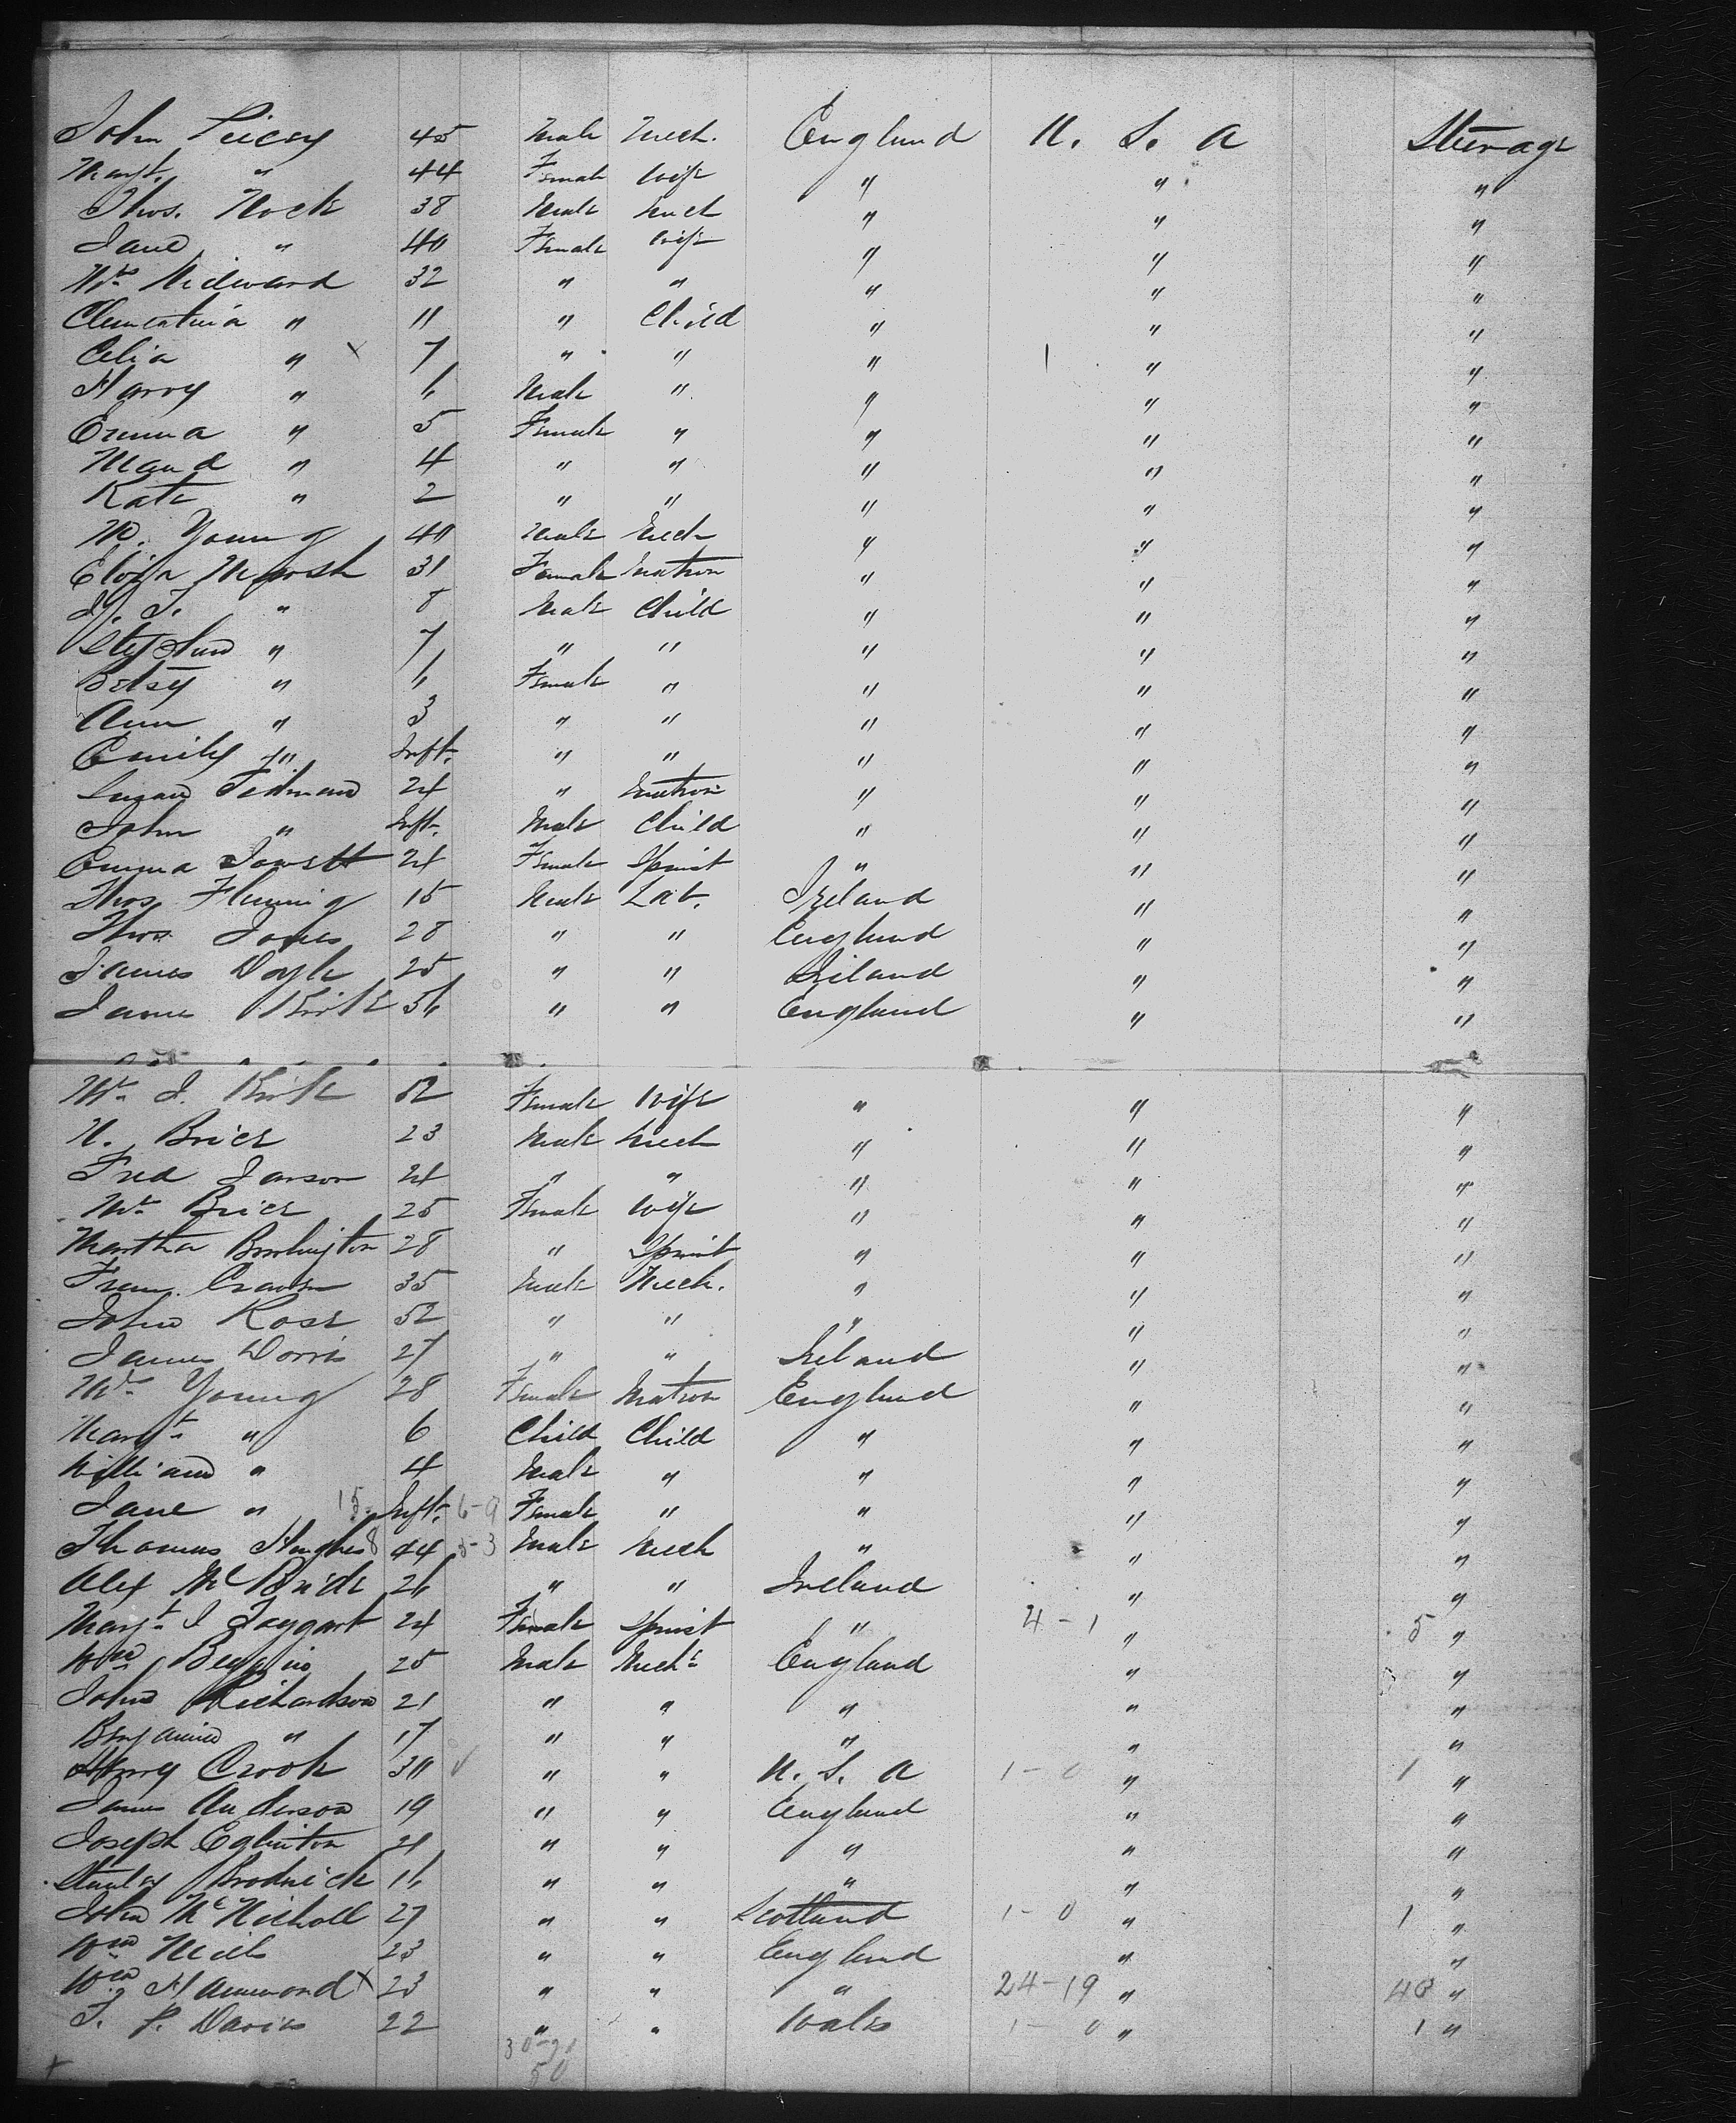 John Peicey 45 Male Mech. England U. S. A Steerage
Margt. " 44 Female Wife " " "
Thos. Nock 38 Male Mech " " "
Jane " 40 Female Wife " " "
Mrs Midward 32 " " " " "
Clementina " 11 " Child " " "
Celia " x 7 " " " " "
Harry " 6 Male " " " "
Emma " 5 Female " " " "
Maud " 4 " " " " "
Kate " 2 " " " " "
M. Young 40 Male Mech " " "
Eliza Marsh 31 Female Matron " " "
J. T. " 8 Male Child " " "
Stephen " 7 " " " " "
Betsy " 6 Female " " " "
Ann " 3 " " " " "
Emily " Inft. " " " " "
Susan Tedman 24 " Matron " " "
John " Inft. Male Child " " "
Emma Jowett 24 Female Spinst " " "
Thos Fleming 15 Male Lab. Ireland " "
Thos Jones 28 " " England " "
James Doyle 25 " " Ireland " "
James Kirk 56 " " England " "
Mrs J. Kirk 52 Female Wife " " "
N. Brier 23 Male Mech " " "
Fred Janson 24 " " " " "
Mrs Brier 25 Female Wife " " "
Martha 28 " Spinst " " "
35 Male Mech. " " "
John Rose 52 " " " " "
James Dorris 27 " " Ireland " "
Mrs Young 28 Female Matron England " "
Margt " 6 Child Child " " "
William " 4 Male " " " "
Jane " 15 Inft. 6-9 Female " " " "
Thomas Hughes 8 44 5-3 Male Mech " " "
Alex McBride 26 " " Ireland " "
Margt J Taggart 24 Female Spinst " 4-1 " 5 "
Wm 25 Male Mech England " "
John Richardson 21 " " " " "
Benjamin " 17 " " " " "
Henry Crook 30 " " U. S. A 1-0 " 1 "
James Anderson 19 " " England " "
Joseph Eglinton 21 " " " " "
Stanley Brodrick 16 " " " " "
John McNicholl 27 " " Scotland 1-0 " 1 "
Wm Neil 23 " " England " "
Wm Hammond x 23 " " " 24-19 " 43 "
T. P. Davies 22 " " Wales 1-0 " 1 "
30-20
50